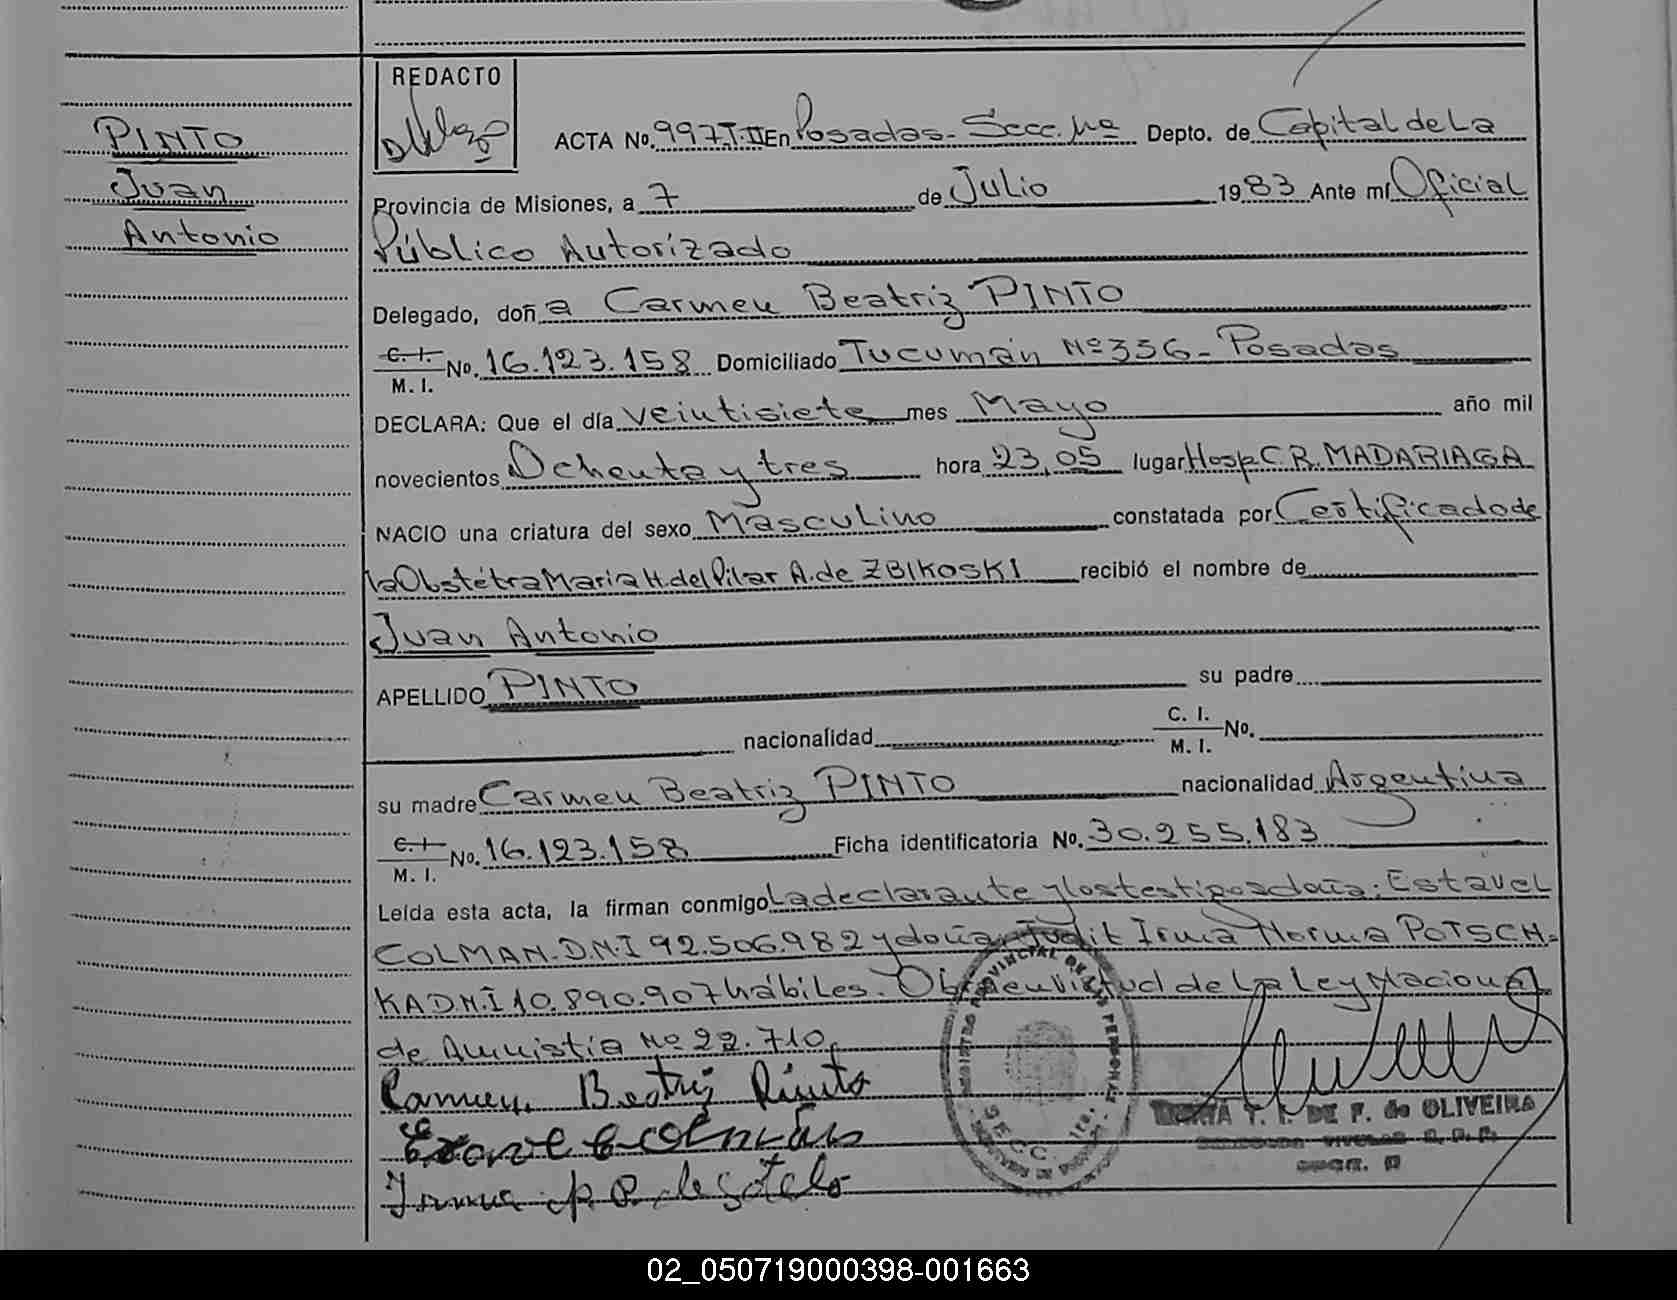 PINTO
Juan
Antonio
REDACTO
ACTA No. 997.T.II En Posadas- Secc. 1ª Depto. de Capital de La
Provincia de Misiones, a 7 de Julio 1983 Ante mí Oficial
Público Autorizado
Delegado, doña Carmen Beatriz PINTO
C. I.
M. I. No. 16.123.158 Domiciliado Tucumán Nº 356- Posadas
DECLARA: Que el día veintisiete mes Mayo año mil
novecientos Ochenta y tres hora 23,05 lugar Hosp. C.R. MADARIAGA
NACIO una criatura del sexo Masculino constatada por Certificado de
la Obstétra Maria H. del Pilar A. de ZBIKOSKI recibió el nombre de
Juan Antonio
APELLIDO PINTO su padre
nacionalidad C. I.
M. I. No.
su madre Carmen Beatriz PINTO nacionalidad Argentina
C. I.
M. I. No. 16.123.158 Ficha identificatoria No. 30.255.183
Leída esta acta, la firman conmigo La declarante y los testigos doña: Estavel
COLMAN. D.N.I 92.506.982 y doña: Judit Irma Norma POTSCH=
KA D.N.I 10.890.907 hábiles. Obra en virtud de La Ley Nacional
de Amnistia Nº 22.710.
Carmen Beatriz Pinto
T. I. DE F. de OLIVEIRA
SECC. 1ra.
02_050719000398-001663